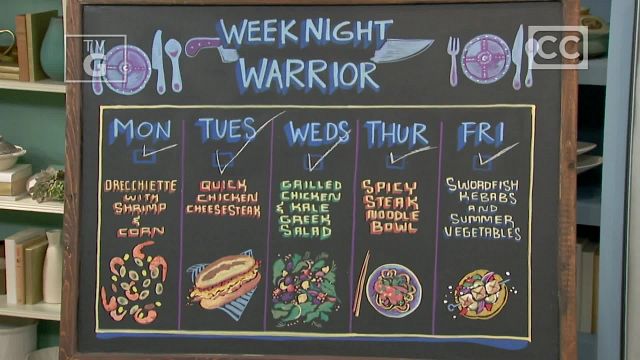 TV
G
CC
WEEKNIGHT
WARRIOR
MON TUES WEDS THUR FRI
ORECCHIETTE
WITH
SHRIMP
&
CORN
QUICK
CHICKEN
CHEESESTEAK
GRILLED
CHICKEN
& KALE
GREEK
SALAD
SPICY
STEAK
NOODLE
BOWL
SWORDFISH
KEBABS
AND
SUMMER
VEGETABLES